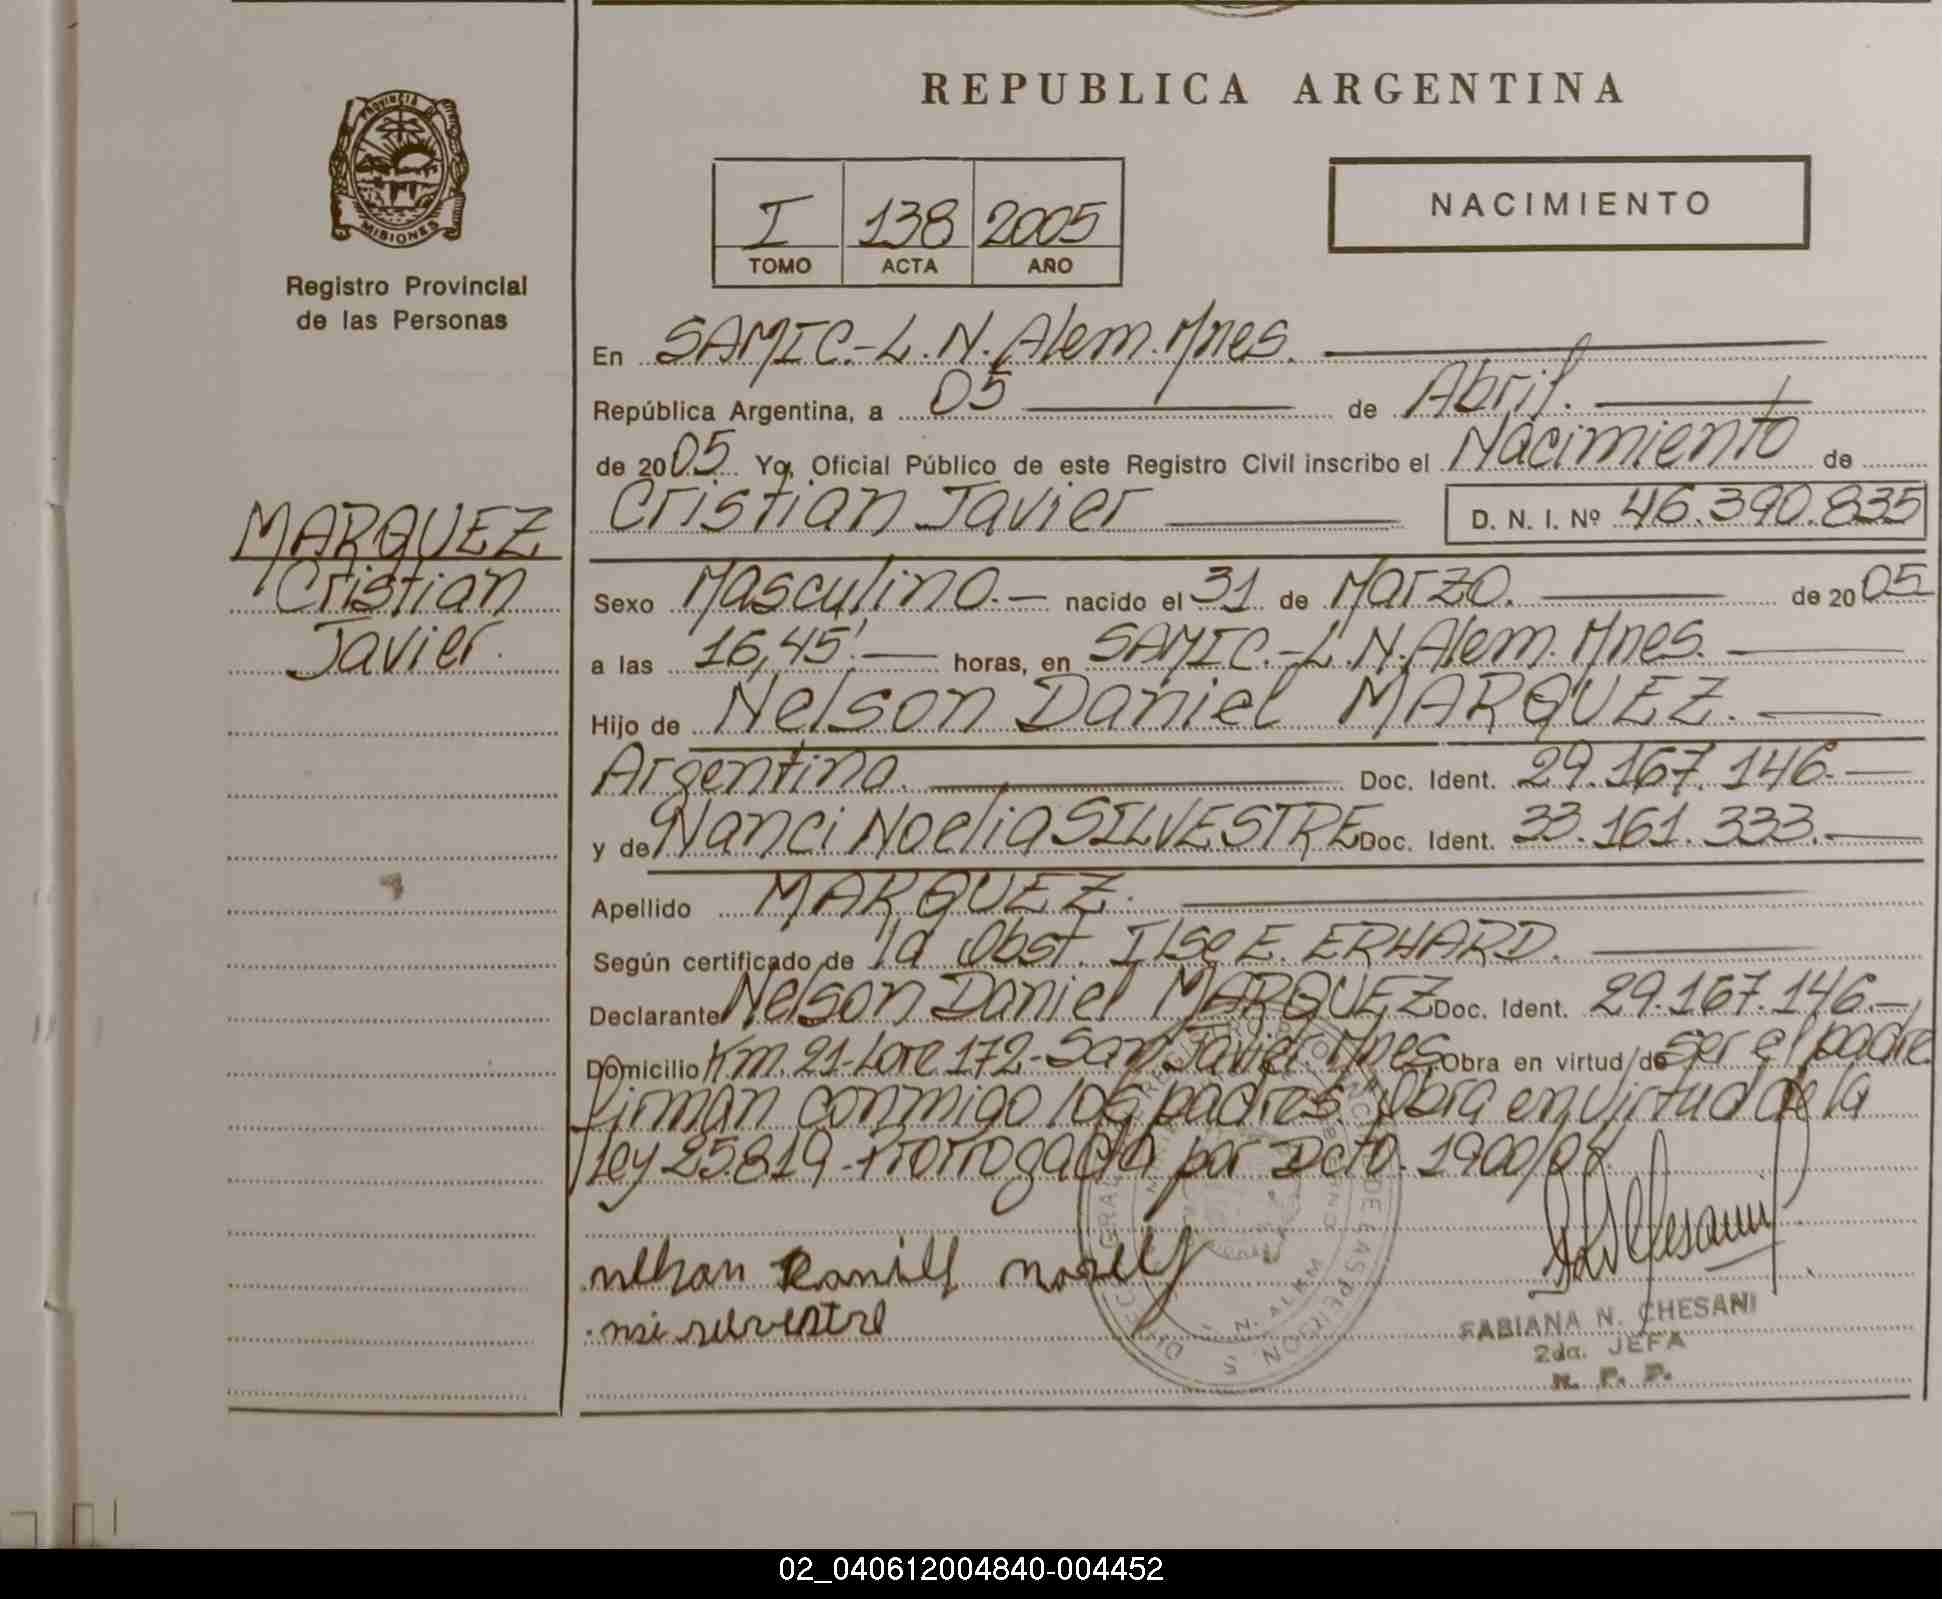 REPUBLICA ARGENTINA
PROVINCIA DE MISIONES
Registro Provincial
de las Personas
I 138 2005
TOMO ACTA AÑO
NACIMIENTO
En SAMIC.-L.N.Alem.Mnes.
República Argentina, a 05 de Abril.
de 2005 Yo, Oficial Público de este Registro Civil inscribo el Nacimiento de
Cristian Javier D. N. I. Nº 46.390.835
MARQUEZ
Cristian
Javier.
Sexo Masculino.- nacido el 31 de Marzo. de 2005
a las 16,45'. horas, en SAMIC.-L.N.Alem.Mnes.
Hijo de Nelson Daniel MARQUEZ.
Argentina. Doc. Ident. 29.167.146.-
y de Nanci Noelia SILVESTRE Doc. Ident. 33.161.333.-
Apellido MARQUEZ.
Según certificado de la Obst. Ilse E. ERHARD.
Declarante Nelson Daniel MARQUEZ Doc. Ident. 29.167.146.-
Domicilio Km.21-Lote 172-San Javier Mnes. Obra en virtud de ser el padre
Firman conmigo los padres. Obra en virtud de la
Ley 25.819-Prorrogada por Dcto. 1900/04.
silvestre
FABIANA N. CHESANI
2da. JEFA
R. P. P.
02_040612004840-004452